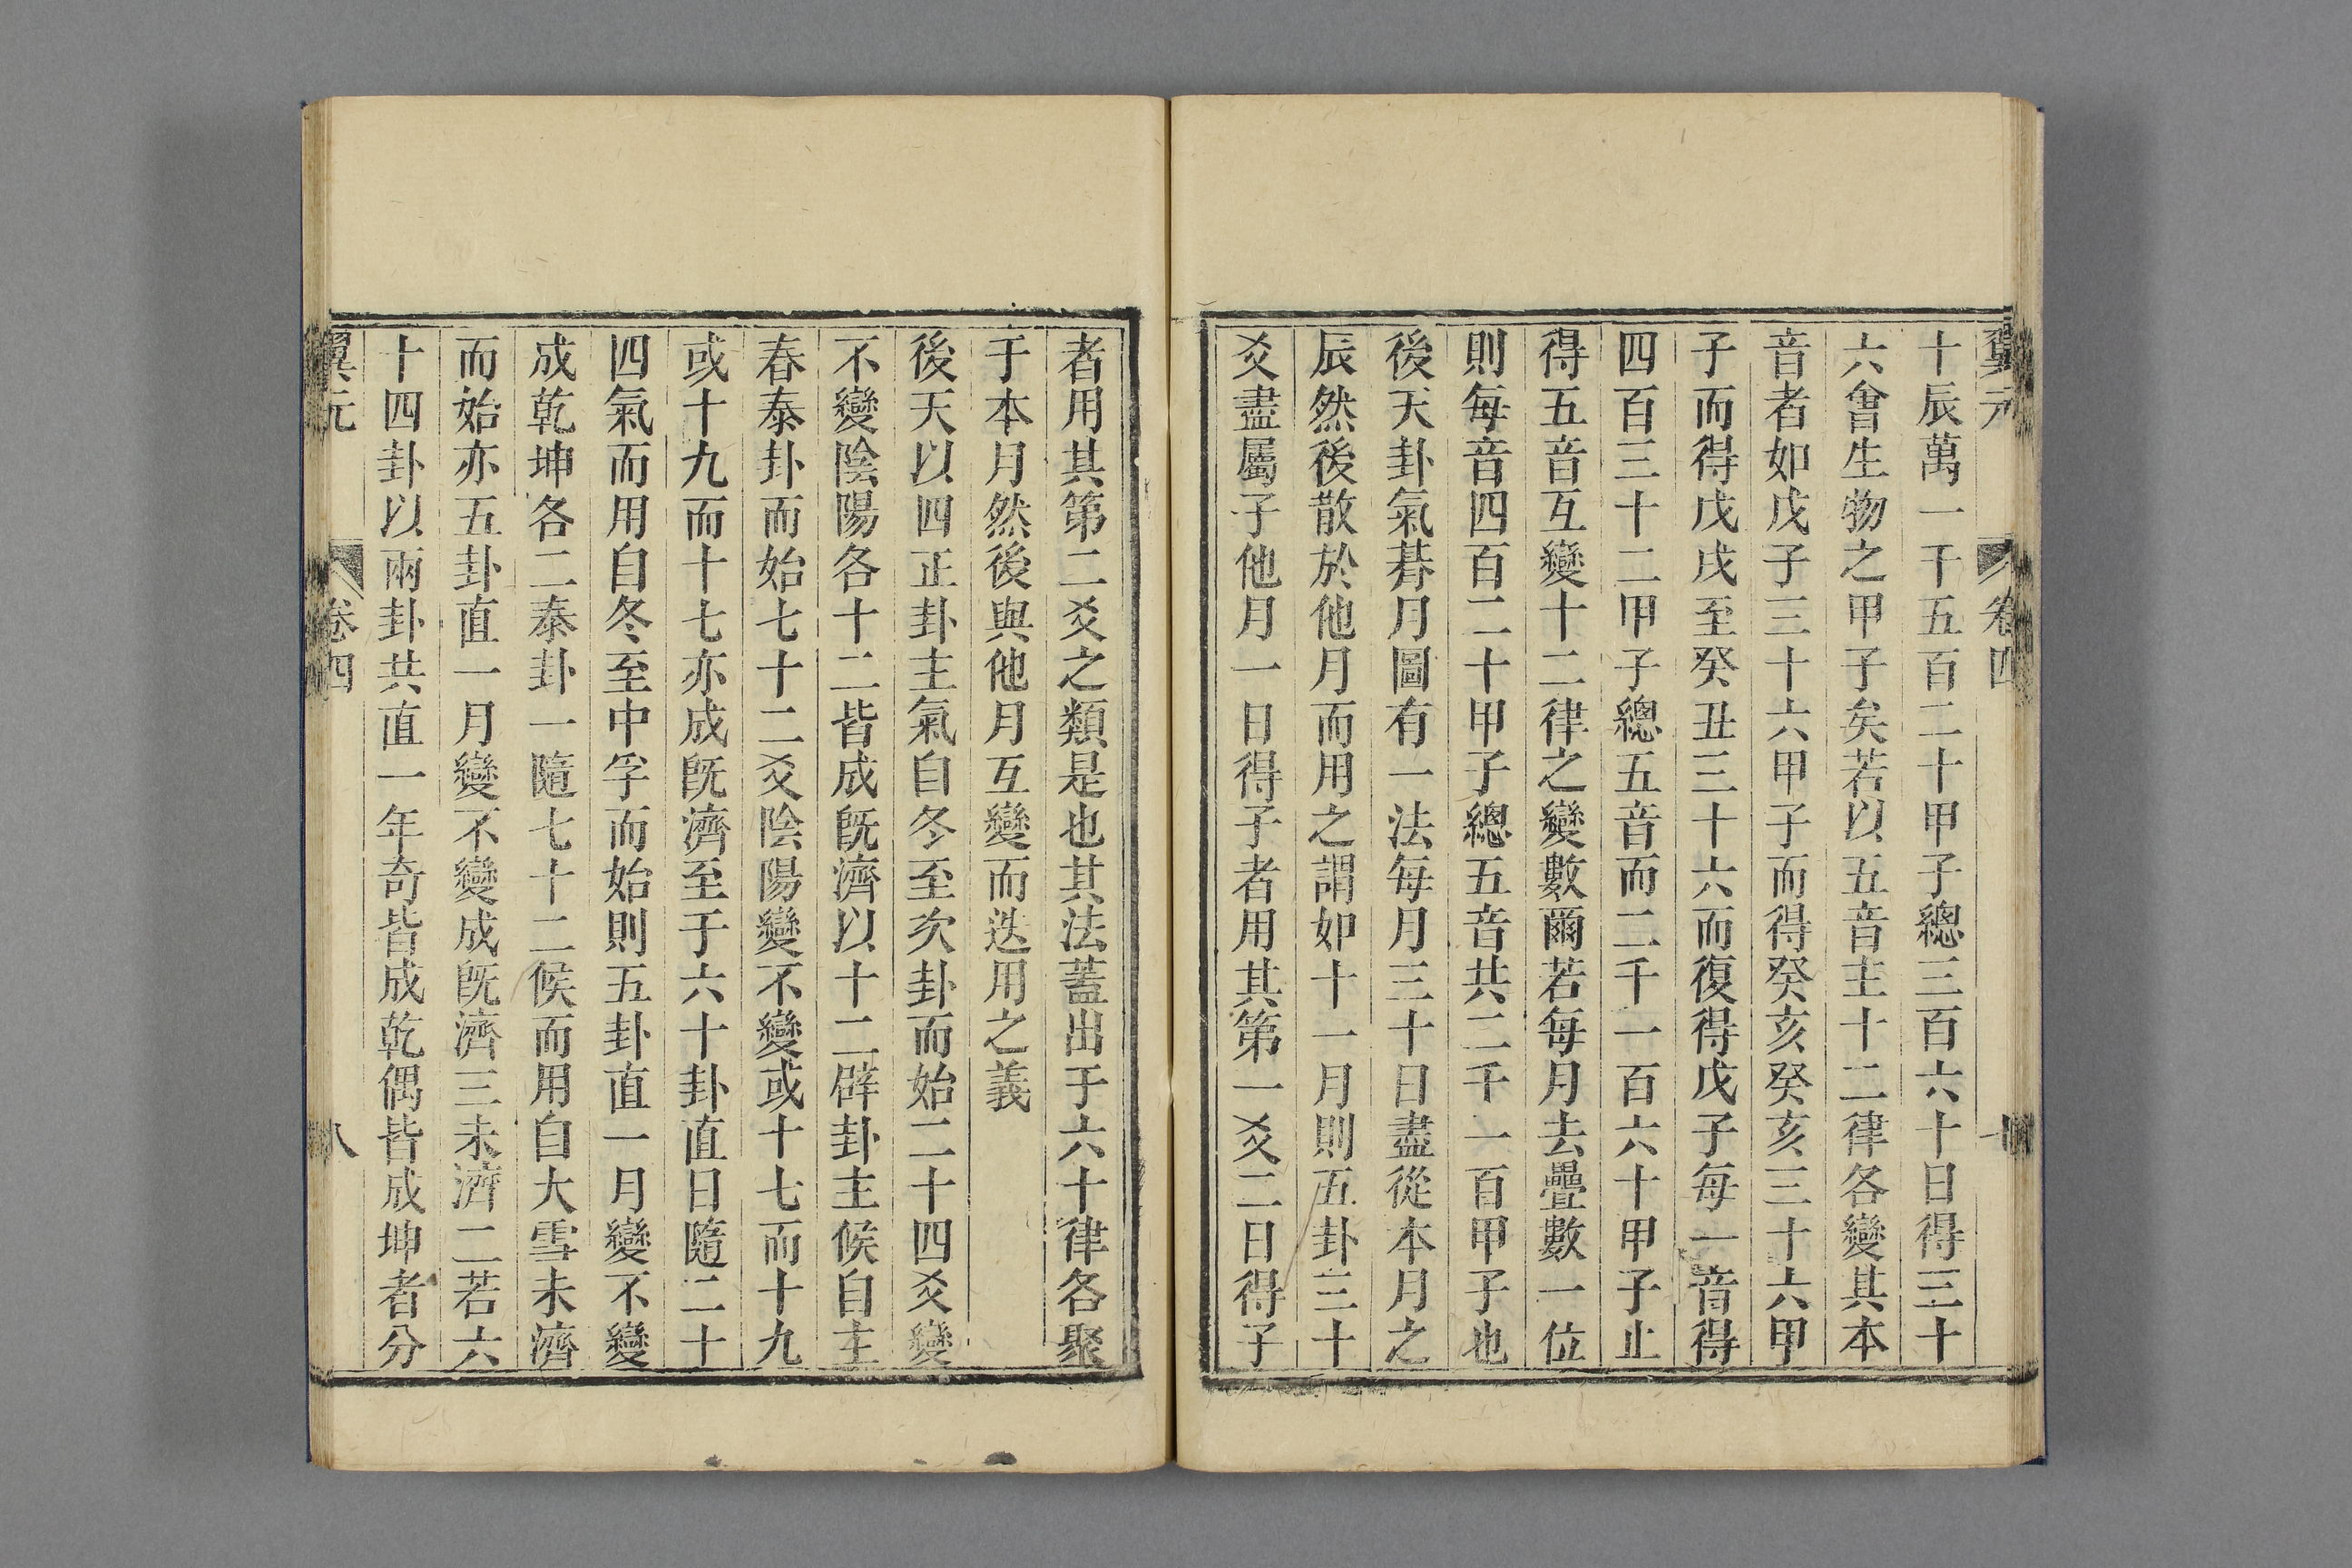 翼元 卷四
十辰萬一千五百二十甲子總三百六十日得三十
六會生物之甲子矣若以五音主十二律各變其本
音者如戊子三十六甲子而得癸亥癸亥三十六甲
子而得戊戌至癸丑三十六而復得戊子每一音得
四百三十二甲子總五音而二千一百六十甲子止
得五音互變十二律之變數爾若每月去疊數一位
則每音四百二十甲子總五音共二千一百甲子也
後天卦氣朞月圖有一法每月三十日盡從本月之
辰然後散於他月而用之謂如十一月則五卦三十
爻盡屬子他月一日得子者用其第一爻二日得子
者用其第二爻之類是也其法蓋出于六十律各聚
于本月然後與他月互變而迭用之義
後天以四正卦主氣自冬至坎卦而始二十四爻變
不變陰陽各十二皆成旣濟以十二辟卦主候自主
春泰卦而始七十二爻陰陽變不變或十七而十九
或十九而十七亦成旣濟至于六十卦直日隨二十
四氣而用自冬至中孚而始則五卦直一月變不變
成乾坤各二泰卦一隨七十二候而用自大雪未濟
而始亦五卦直一月變不變成旣濟三未濟二若六
十四卦以兩卦共直一年奇皆成乾偶皆成坤者分
翼元 卷四 八